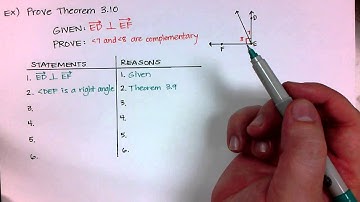 Ex) Prove Theorem 3.10
GIVEN: ED ⊥ EF
PROVE: <7 and <8 are complementary
STATEMENTS REASONS
1. ED ⊥ EF 1. Given
2. <DEF is a right angle 2. Theorem 3.9
3. 3.
4. 4.
5. 5.
6. 6.
D
8 7
F E